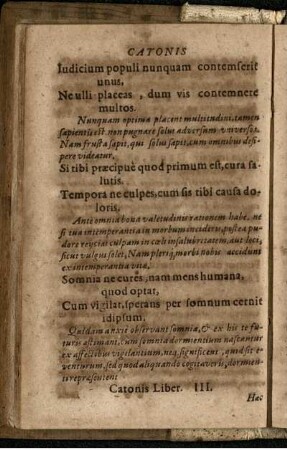 CATONIS
Iudicium populi nunquam contemserit
unus,
Ne ulli placeas, dum vis contemnere
multos.
Nunquam optima placent multitudini, tamen
sapientis est non pugnare solus adversum universos.
Nam frusta sapit, qui solus sapit, cum omnibus desi-
pere videatur.
Si tibi præcipuè quod primum est, cura sa-
lutis.
Tempora ne culpes, cum sis tibi causa do-
loris.
Ante omnia bona valetudinis rationem habe, ne
si tua intemperantia in morbum incideris, postea pu-
dore rejicias culpam in cœli insalubritatem, aut loci,
sicut vulgus solet, Nam pleriq; morbi nobis accidunt
ex intemperantia vitæ,
Somnia ne cures, nam mens humana,
quod optat,
Cum vigilat, sperans per somnum cernit
idipsum.
Quidam anxiè observant somnia, & ex his de fu-
turis æstimant, cum somnia dormientium nascantur
ex affectibus vigilantium, neq; significent, quid sit e-
venturum, sed quod aliquando cogitaveris, dormien-
ti repræsentent
Catonis Liber. III.
Hac